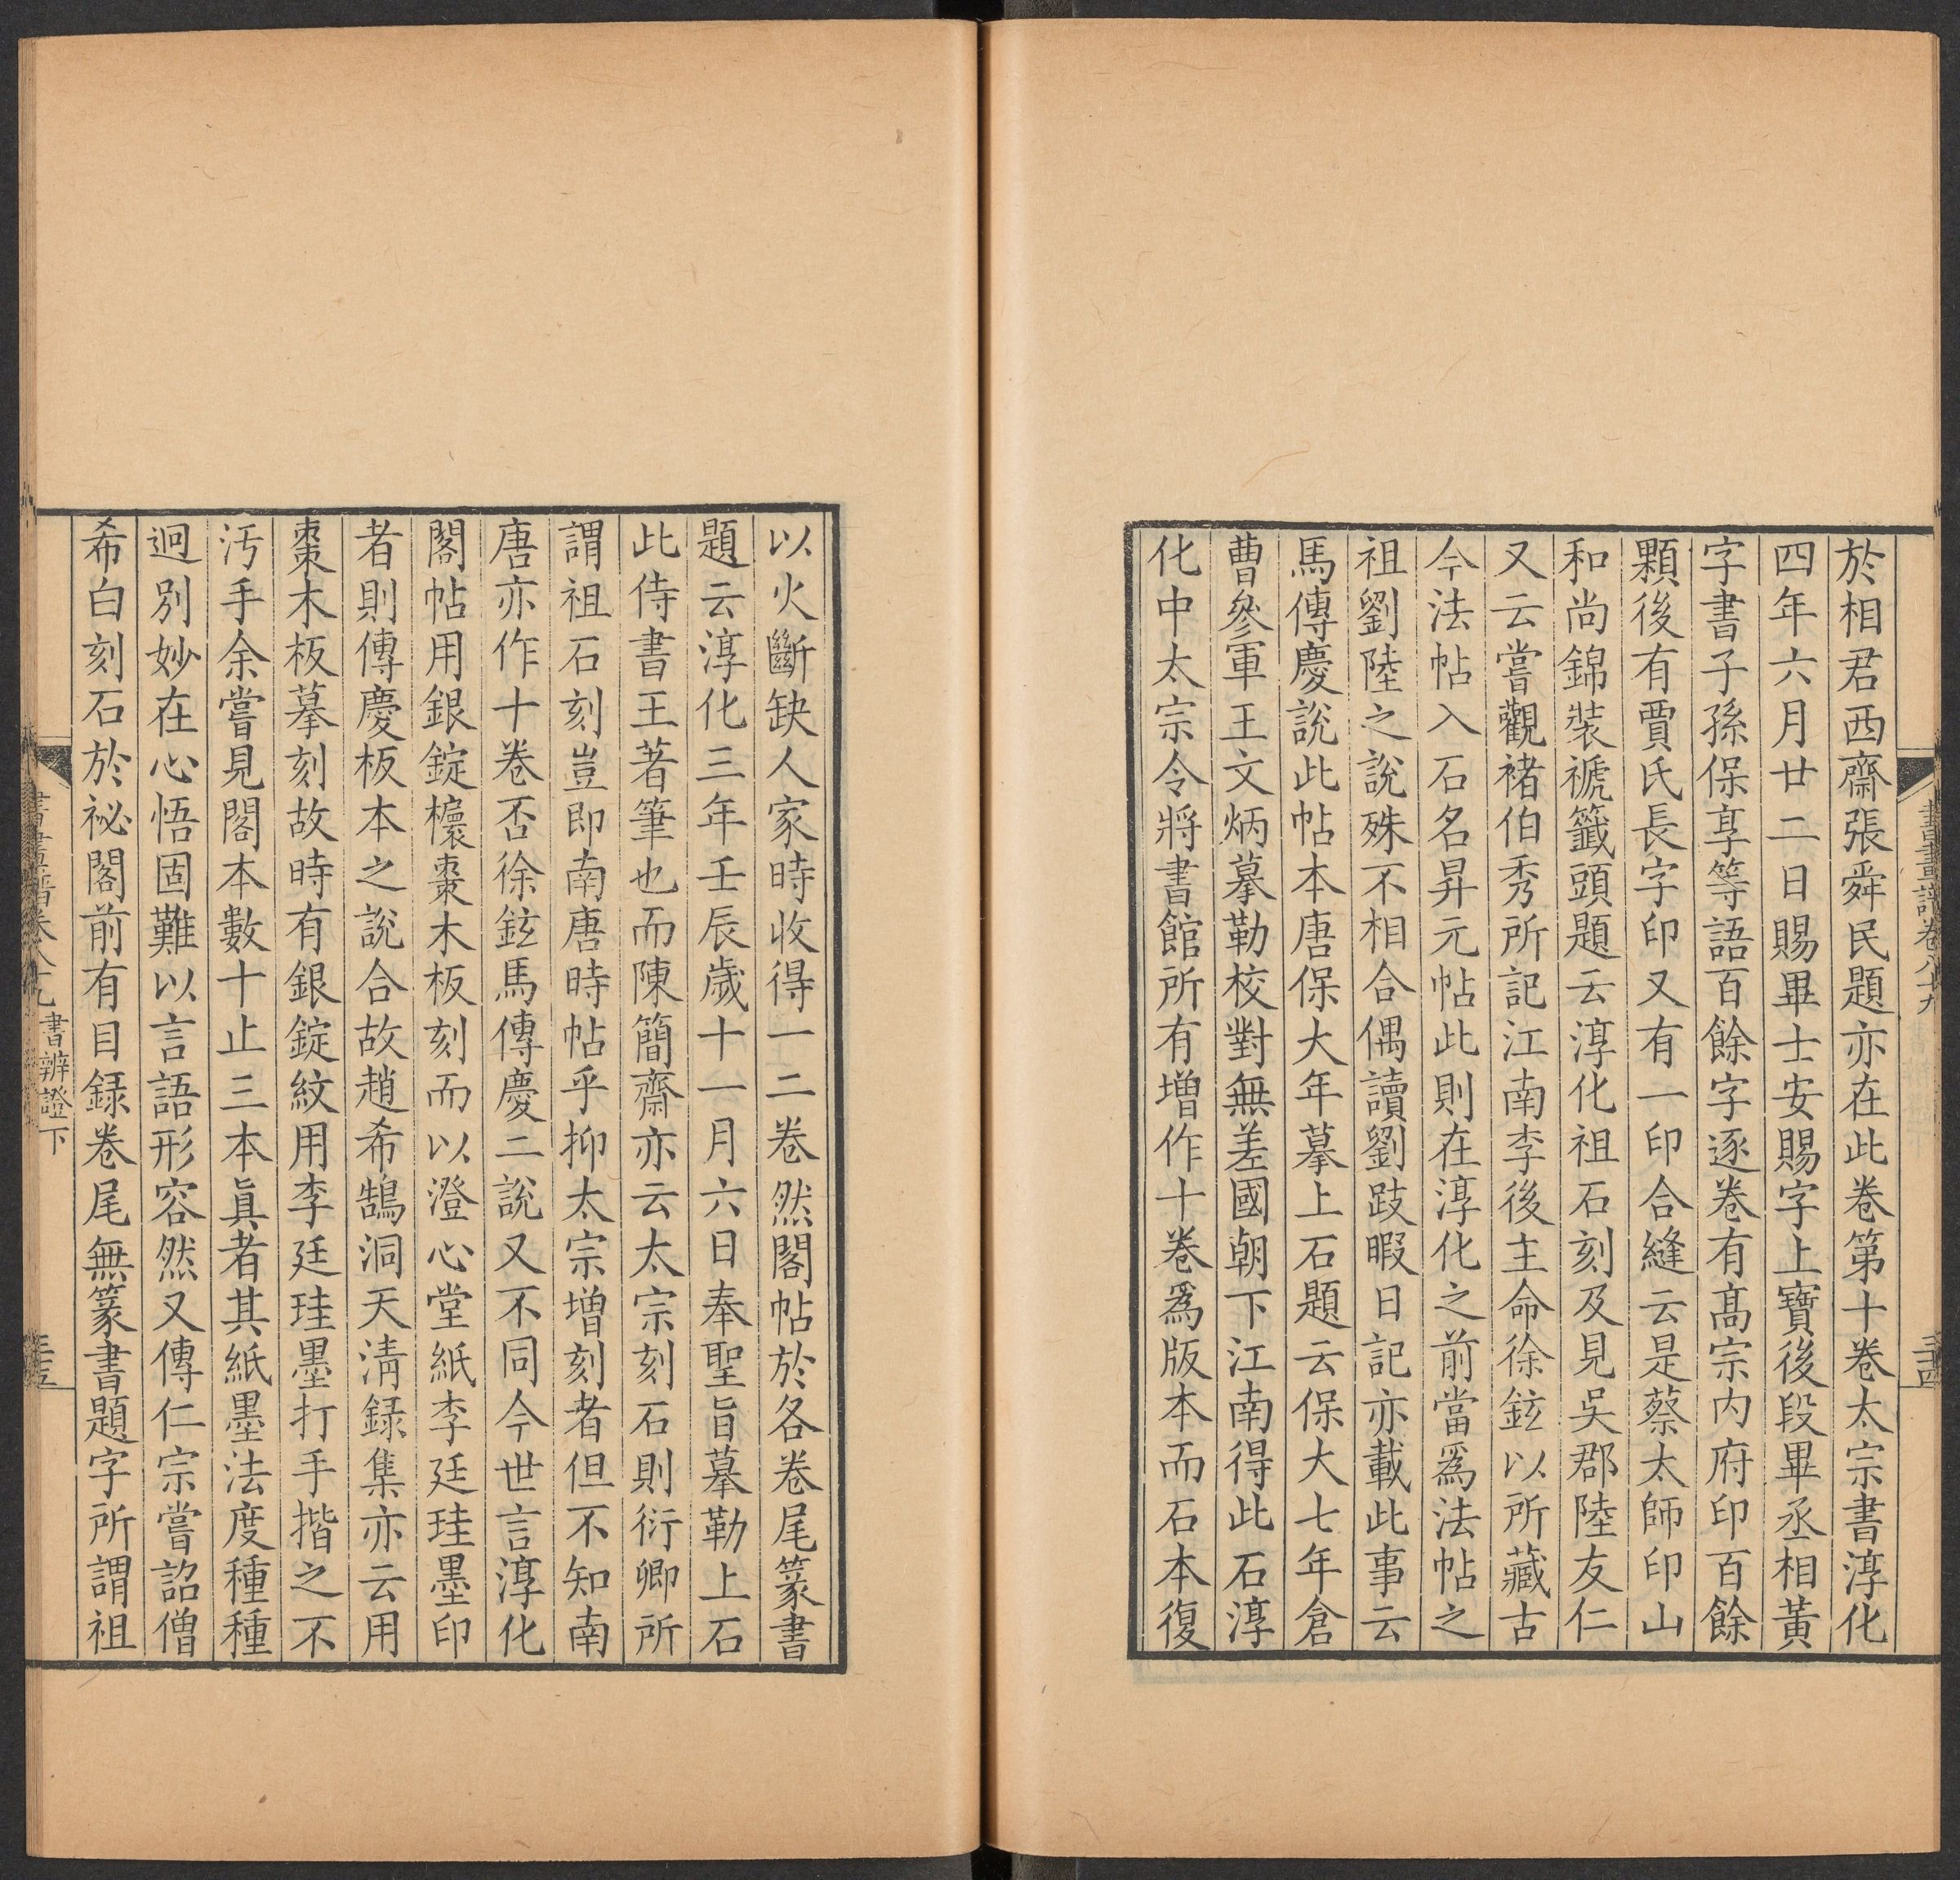 於相君西齋張舜民題亦在此卷第十卷太宗書淳化
四年六月廿二日賜畢士安賜字上寶後段畢丞相黃
字書子孫保享等語百餘字逐卷有高宗內府印百餘
顆後有賈氏長字印又有一印合縫云是蔡太師印山
和尚錦裝褫籤頭題云淳化祖石刻及見吳郡陸友仁
又云嘗觀褚伯秀所記江南李後主命徐鉉以所藏古
今法帖入石名昇元帖此則在淳化之前當爲法帖之
祖劉陸之說殊不相合偶讀劉跂暇日記亦載此事云
馬傳慶說此帖本唐保大年摹上石題云保大七年倉
曹參軍王文炳摹勒校對無差國朝下江南得此石淳
化中太宗令將書館所有增作十卷爲版本而石本復
書畫譜卷八十九
三十四
以火斷缺人家時收得一二卷然閣帖於各卷尾篆書
題云淳化三年壬辰歲十一月六日奉聖旨摹勒上石
此侍書王著筆也而陳簡齋亦云太宗刻石則衍卿所
謂祖石刻豈即南唐時帖乎抑太宗增刻者但不知南
唐亦作十卷否徐鉉馬傳慶二說又不同今世言淳化
閣帖用銀錠櫰棗木板刻而以澄心堂紙李廷珪墨印
者則傳慶板本之說合故趙希鵠洞天清錄集亦云用
棗木板摹刻故時有銀錠紋用李廷珪墨打手揩之不
汚手余嘗見閣本數十止三本真者其紙墨法度種種
迥別妙在心悟固難以言語形容然又傳仁宗嘗詔僧
希白刻石於祕閣前有目錄卷尾無篆書題字所謂祖
書畫譜卷八十九 書辨證下
三十五